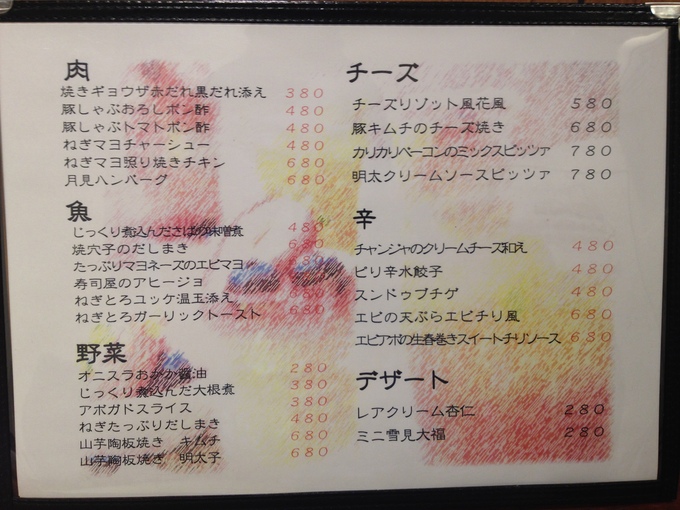 肉
焼きギョウザ赤だれ黒だれ添え 380
豚しゃぶおろしポン酢 480
豚しゃぶトマトポン酢 480
ねぎマヨチャーシュー 480
ねぎマヨ照り焼きチキン 680
月見ハンバーグ 680
魚
じっくり煮込んださばの味噌煮 480
焼穴子のだしまき 680
たっぷりマヨネーズのエビマヨ 680
寿司屋のアヒージョ
ねぎとろユッケ温玉添え 680
ねぎとろガーリックトースト 680
野菜
オニスラおかか醤油 280
じっくり煮込んだ大根煮 380
アボガドスライス 380
ねぎたっぷりだしまき 480
山芋陶板焼き キムチ 680
山芋陶板焼き 明太子 680
チーズ
チーズリゾット風花風 580
豚キムチのチーズ焼き 680
カリカリベーコンのミックスピッツァ 780
明太クリームソースピッツァ 780
辛
チャンジャのクリームチーズ和え 480
ピリ辛水餃子 480
スンドゥブチゲ 480
エビの天ぷらエビチリ風 680
エビアボの生春巻きスイートチリソース 680
デザート
レアクリーム杏仁 280
ミニ雪見大福 280